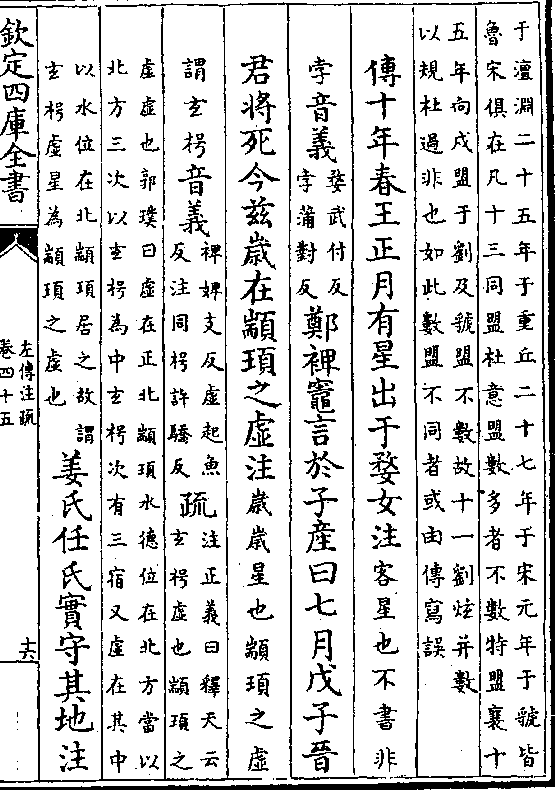 于澶淵二十五年于重丘二十七年于宋元年于虢皆
魯宋俱在凡十三同盟杜意盟數多者不數特盟襄十
五年向戌盟于劉及虢盟不數故十一劉炫并數
以規杜過非也如此數盟不同者或由傳寫誤
傳十年春王正月有星出于婺女注客星也不書非
孛音義婺武付反孛蒲對反鄭裨竈言於子產曰七月戊子晉
君將死今兹歲在顓頊之虛注歲歲星也顓頊之虛
謂玄枵音義裨婢支反虛起魚反注同枵許驕反疏注正義曰釋天云玄枵虛也顓頊之
虛虛也郭璞曰虛在正北顓頊水德位在北方當以
北方三次以玄枵為中玄枵次有三宿又虛在其中
以水位在北顓頊居之故謂玄枵虛星為顓頊之虛也姜氏任氏實守其地注
欽定四庫全書
左傳注疏
卷四十五
十六